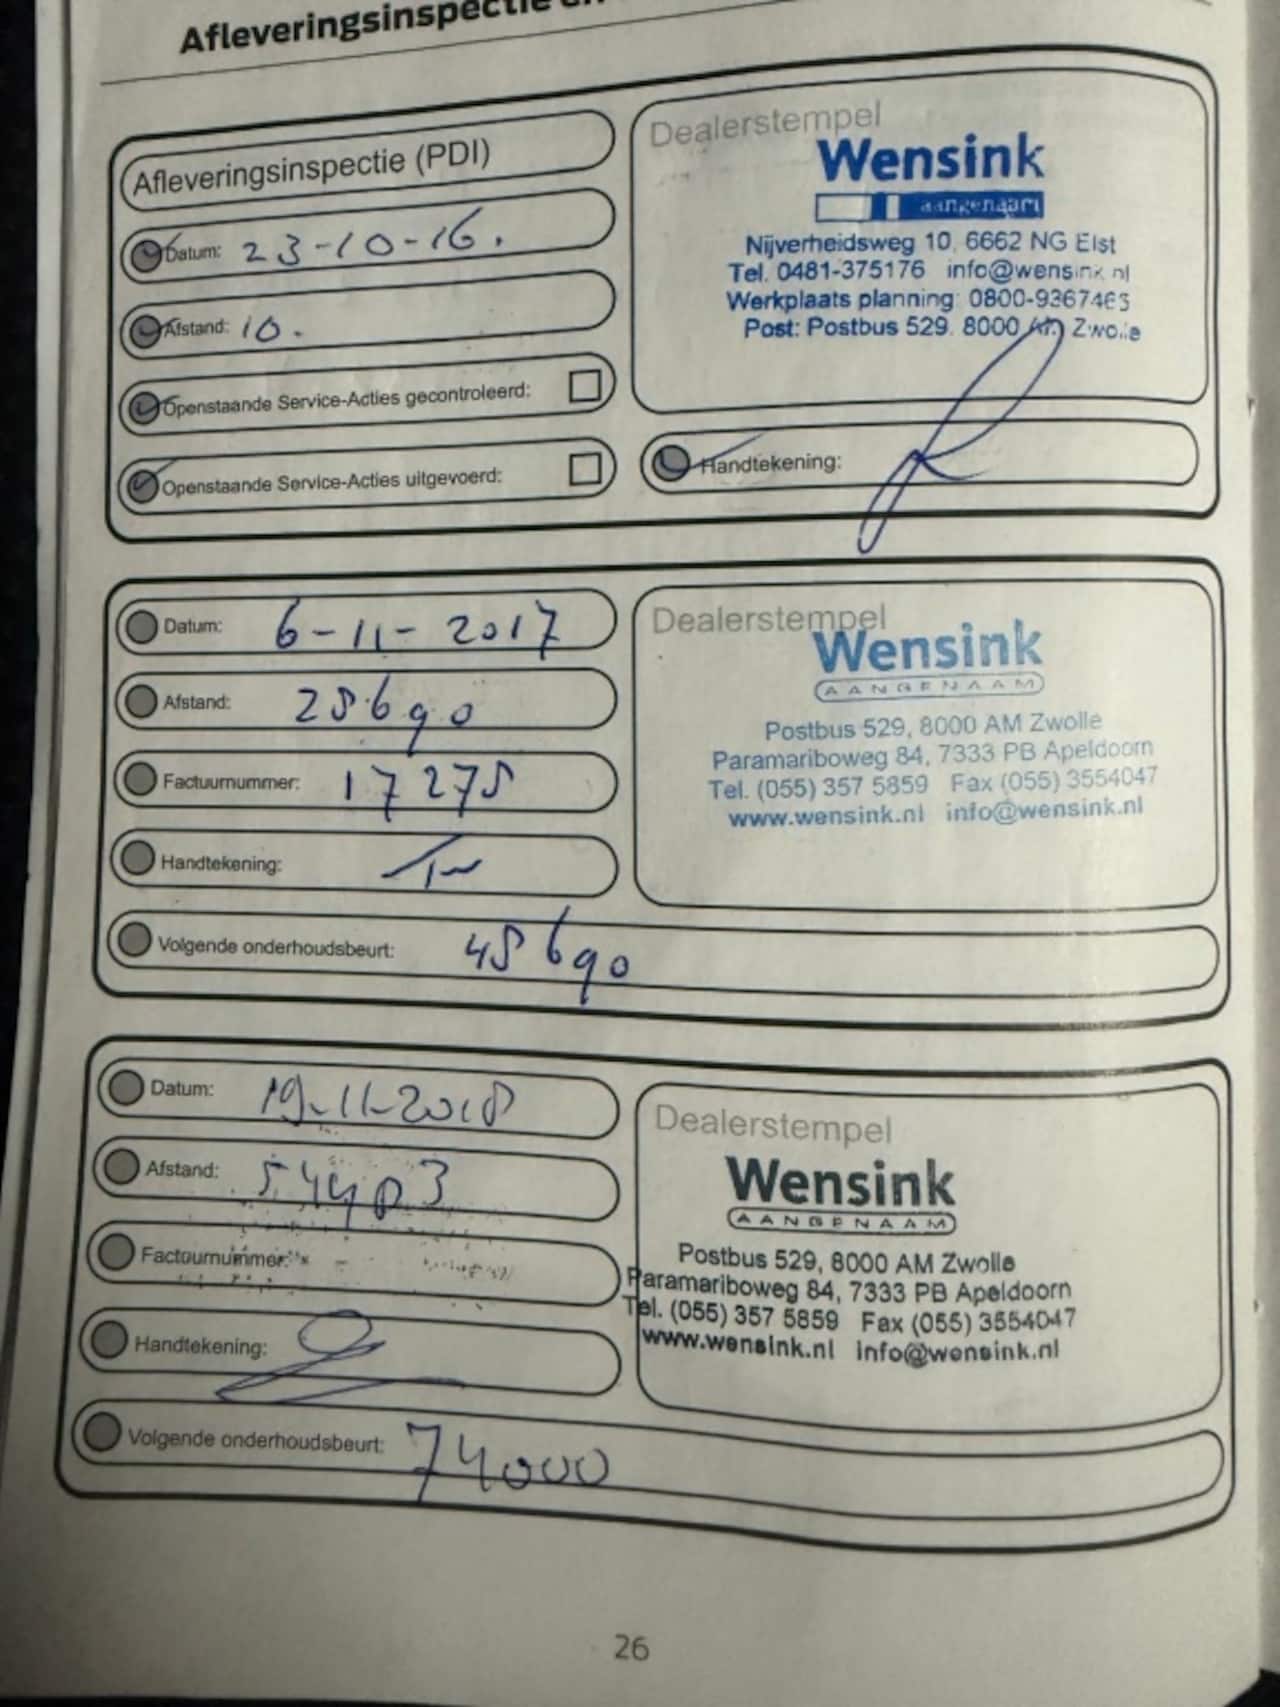 Afleveringsinspectie en
Afleveringsinspectie (PDI)
Datum: 23-10-16.
Afstand: 10.
Openstaande Service-Acties gecontroleerd:
Openstaande Service-Acties uitgevoerd:
Dealerstempel
Wensink
aangenaam
Nijverheidsweg 10, 6662 NG Elst
Tel. 0481-375176 info@wensink.nl
Werkplaats planning: 0800-9367465
Post: Postbus 529. 8000 AM Zwolle
Handtekening:
Datum: 6-11-2017
Afstand: 28690
Factuurnummer: 17278
Handtekening:
Volgende onderhoudsbeurt: 48690
Dealerstempel
Wensink
AANGENAAM
Postbus 529, 8000 AM Zwolle
Paramariboweg 84, 7333 PB Apeldoorn
Tel. (055) 357 5859 Fax (055) 3554047
www.wensink.nl info@wensink.nl
Datum: 19-11-2018
Afstand:
Factuurnummer:
Handtekening:
Volgende onderhoudsbeurt: 74000
Dealerstempel
Wensink
AANGENAAM
Postbus 529, 8000 AM Zwolle
Paramariboweg 84, 7333 PB Apeldoorn
Tel. (055) 357 5859 Fax (055) 3554047
www.wensink.nl info@wensink.nl
26